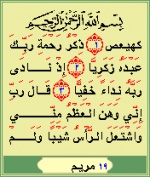 بسم الله الرحمن الرحيم
كهيعص ١ ذكر رحمة ربك
عبده زكريا ٢ إذ نادى
ربه نداء خفيا ٣ قال رب
إني وهن العظم مني
واشتعل الرأس شيبا ولم
١٩ مريم